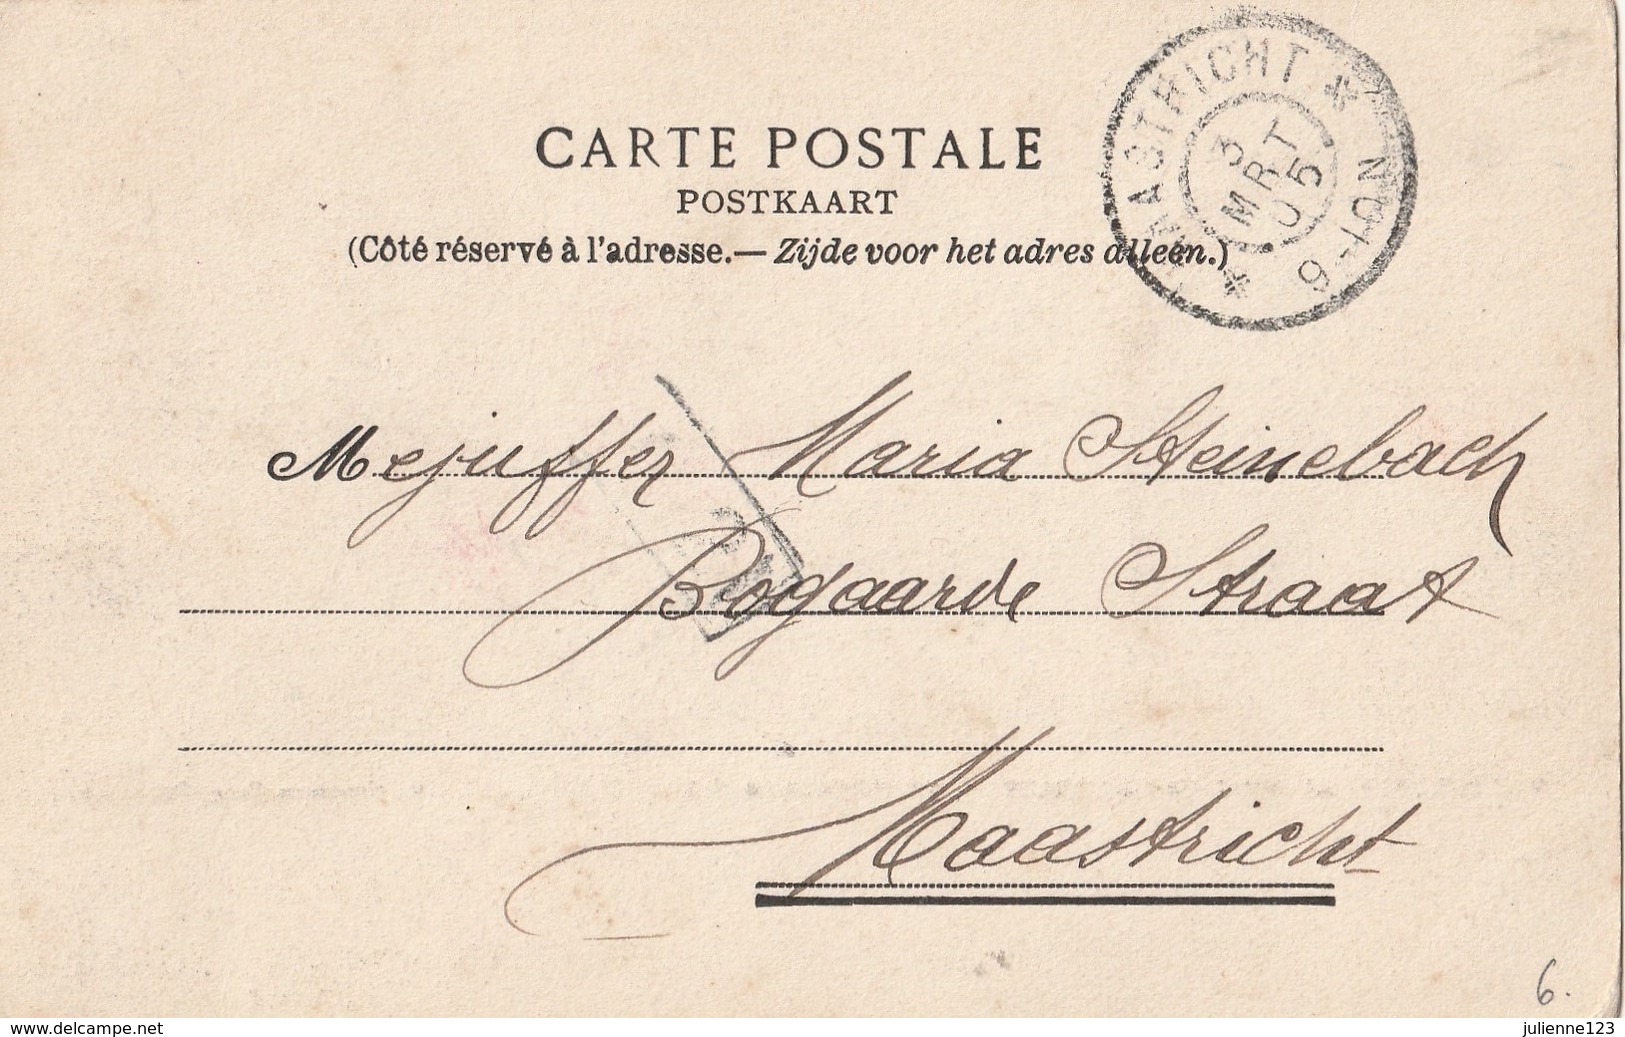 CARTE POSTALE
POSTKAART
(Côté réservé à l'adresse.— Zijde voor het adres alleen.)
MAASTRICHT * 9-10 N *
3
MRT
05
Mejuffer Maria Steinebach
Bogaarde Straat
Maastricht
6.
www.delcampe.net
julienne123